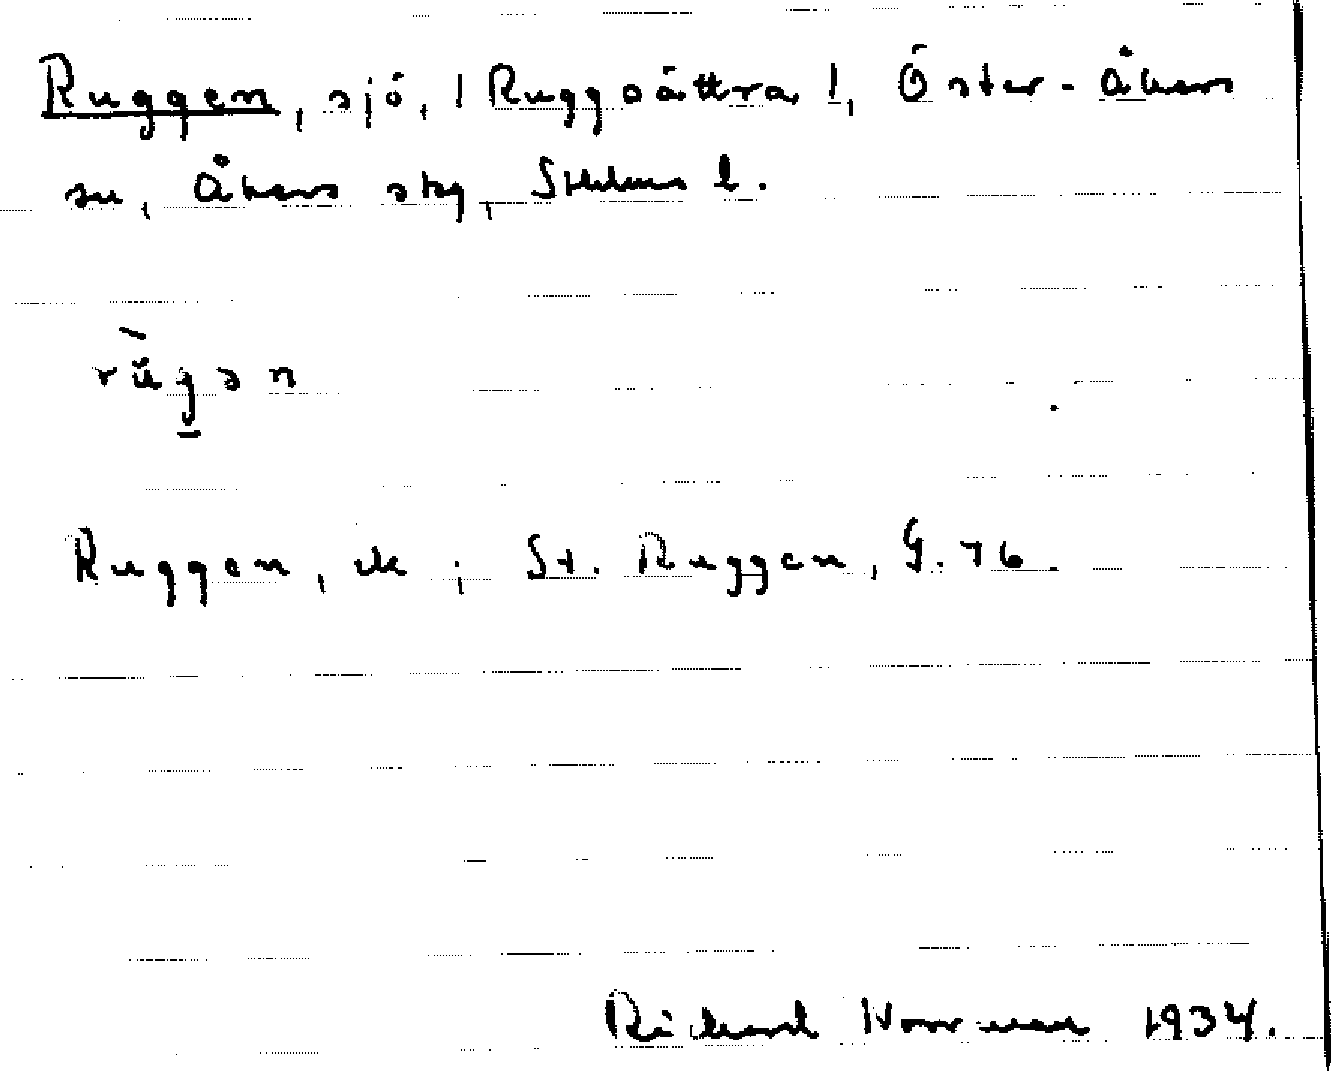 Ruggen, sjö, ! Ruggsättra !, Öster-Åkers
sn, Åkers skg, Sthlms l.
rùgən
Ruggen, ek ; St. Ruggen, G. 76.
Richard Norrman 1934.